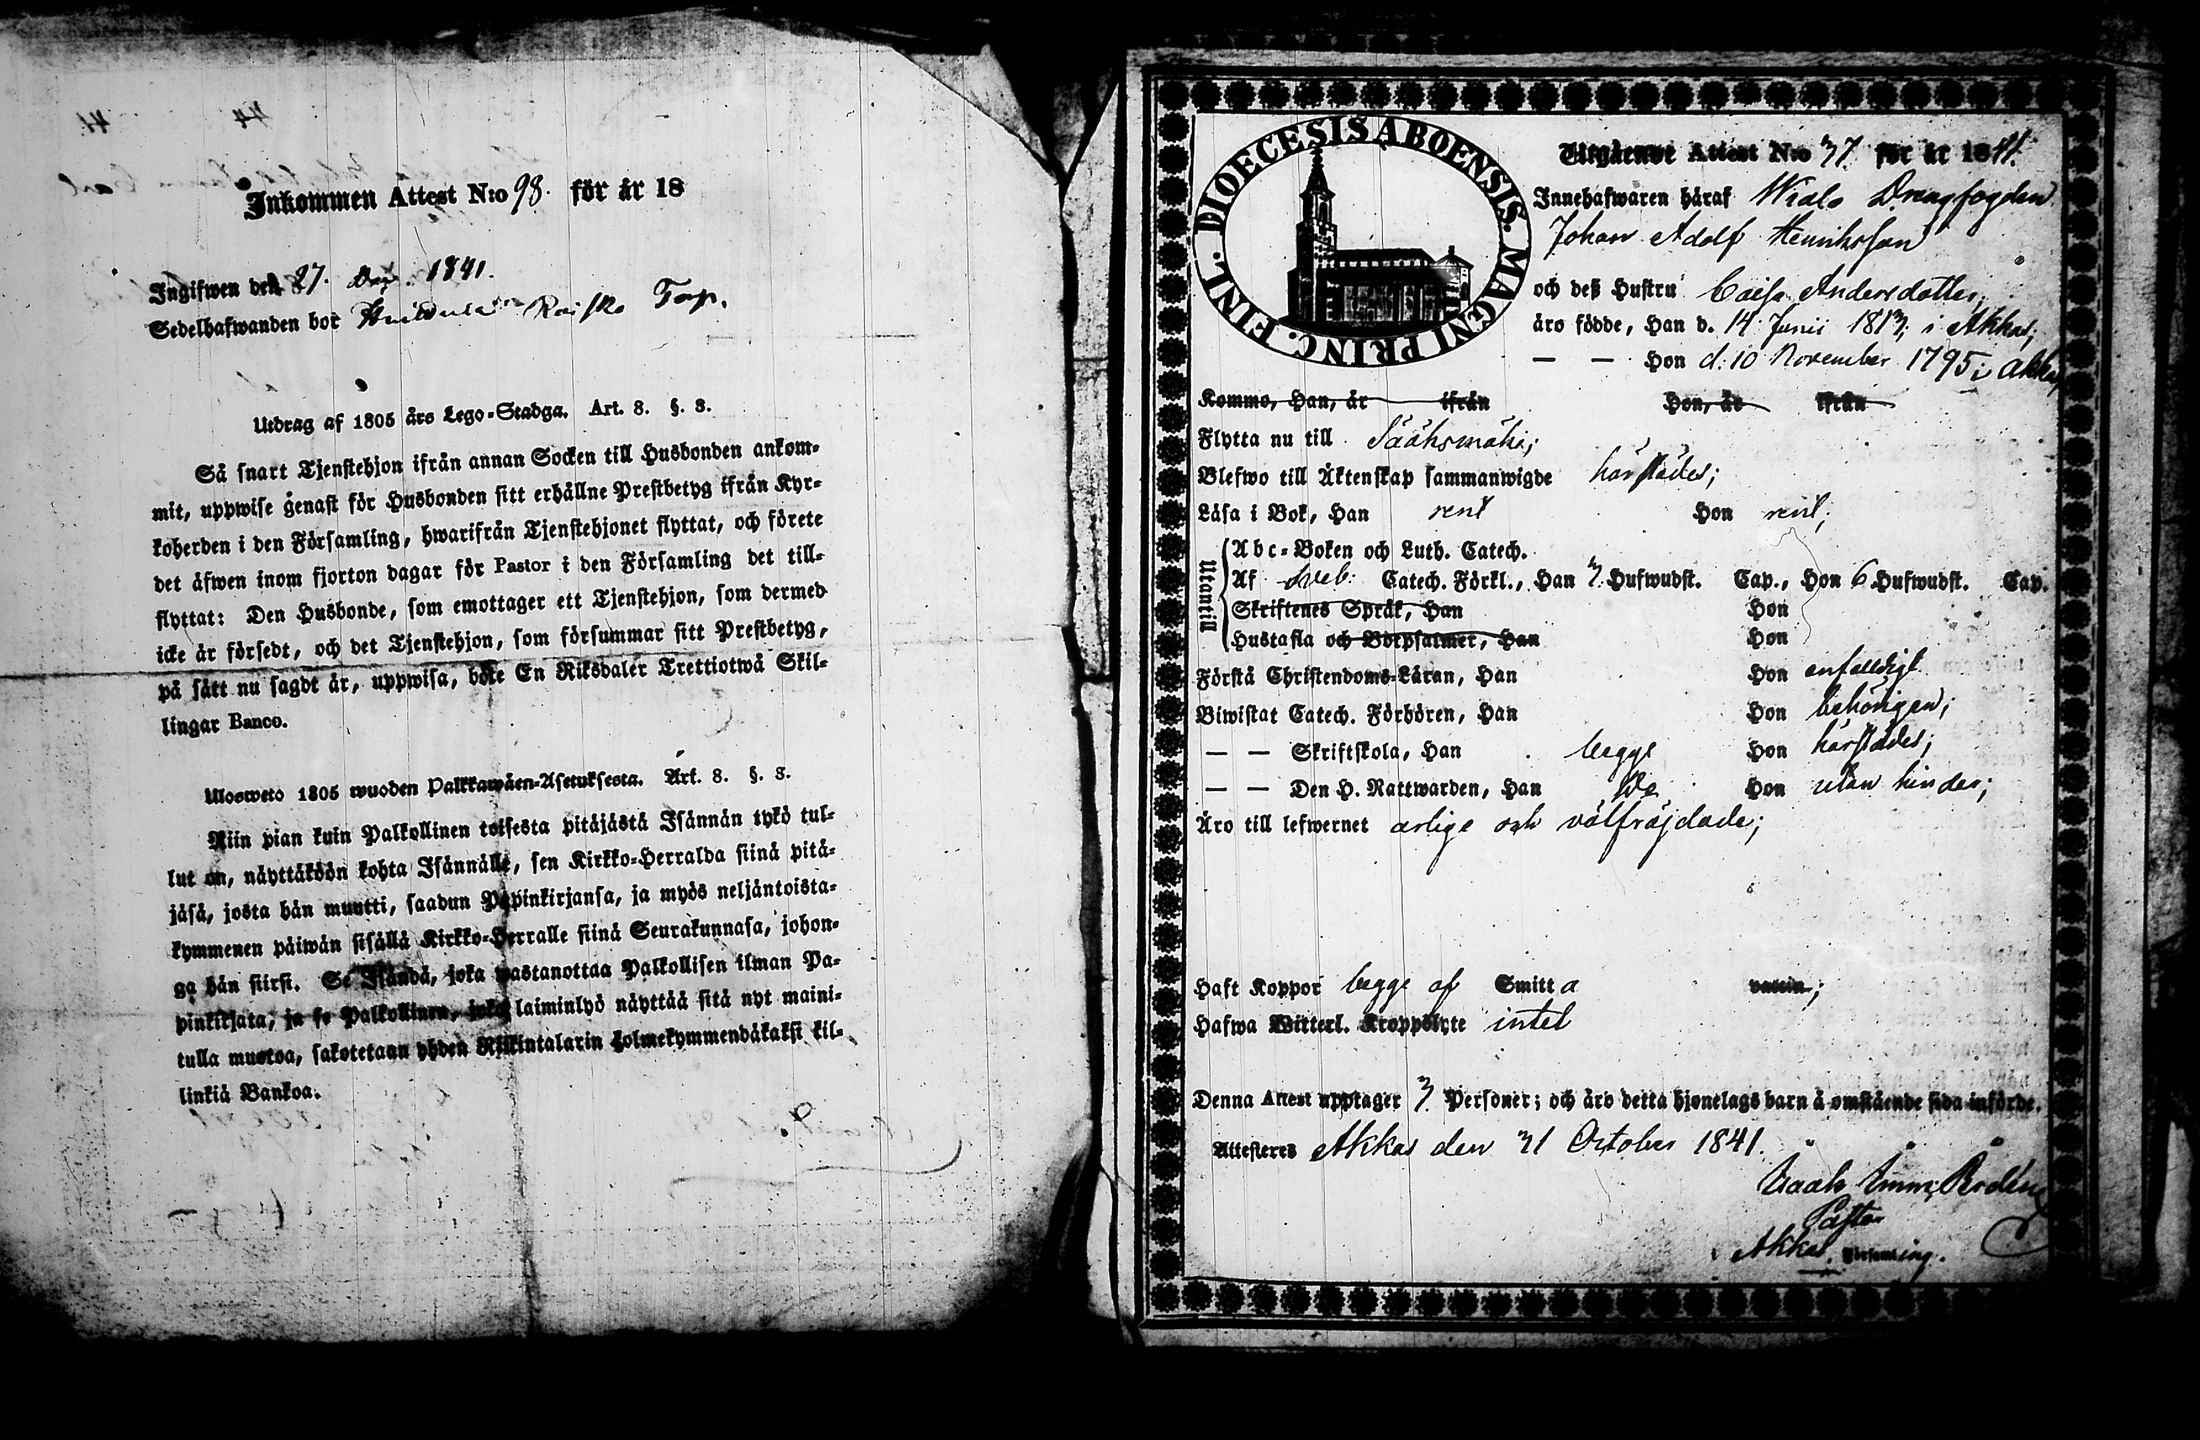 Inkommen Attest N:o 98. för år 18
Ingifwen den 27. Dec. 1841.
Sedelhafwanden bor Raisko Torp.
Utdrag af 1805 års Lego-Stadga. Art. 8. §. 3.
Så snart Tjenstehjon ifrån annan Socken till Husbonden ankom-
mit, uppwise genast för Husbonden sitt erhållne Prestbetyg ifrån Kyr-
koherden i den Församling, hwarifrån Tjenstehjonet flyttat, och förete
det äfwen inom fjorton dagar för Pastor i den Församling det till-
flyttat: Den Husbonde, som emottager ett Tjenstehjon, som dermed
icke är försedt, och det Tjenstehjon, som försummar sitt Prestbetyg,
på sätt nu sagdt är, uppwisa, böte En Riksdaler Trettiotwå Skil-
lingar Banco.
Ulosweto 1805 wuoden Palkkawäen-Asetuksesta. Art. 8. §. 3.
Niin pian kuin Palkollinen toisesta pitäjästä Isännän tykö tul-
lut on, näyttäköön kohta Isännälle, sen Kirkko-Herralda siinä pitä-
jäsä, josta hän muutti, saadun Papinkirjansa, ja myös neljäntoista-
kymmenen päiwän sisällä Kirkko-Herralle siinä Seurakunnasa, johon-
ga hän siirsi. Se Isändä, joka wastanottaa Palkollisen ilman Pa-
pinkirjata, ja se Palkollinen, joka laiminlyö näyttää sitä nyt maini-
tulla muotoa, sakotetaan yhden Riikintalarin kolmekymmendäkaksi kil-
linkiä Bankoa.
DIOECESIS ABOENSIS. MAGNI PRINC. FINL.
Utgående Attest N:o 37. för år 1841.
Innehafwaren häraf Wialo Drengfogden
Johan Adolf Henriksson
och deß Hustru Caisa Andersdotter,
äro födde, Han d. 14 Junii 1813; i Akkas;
— — Hon d. 10 November 1795 i Akkas
Kommo, Han, år ifrån Hon, år ifrån
Flytta nu till Sääksmäki;
Blefwo till Äktenskap sammanwigde härstädes;
Läsa i Bok, Han rent Hon rent;
Utantill
Abc-Boken och Luth. Catech.
Af Sveb: Catech. Förkl., Han 3 Hufwudst. Cap., Hon 6 Hufwudst. Cap.
Skriftenes Språk, Han Hon
Hustafla och Botpsalmer, Han Hon
Förstå Christendoms-Läran, Han Hon enfaldigt
Biwistat Catech. Förhören, Han Hon behörigen;
— — Skriftskola, Han begge Hon härstädes;
— — Den H. Nattwarden, Han Do Hon utan hinder;
Äro till lefwernet ärlige och välfräjdade;
Haft Koppor begge af Smitta vaccin;
Hafwa Witterl. Kroppslyte intet
Denna Attest upptager 3 Personer; och äro detta hjonelags barn å omstående sida införde.
Attesteres Akkas den 31 October 1841.
Pastor
Akkas Församling.